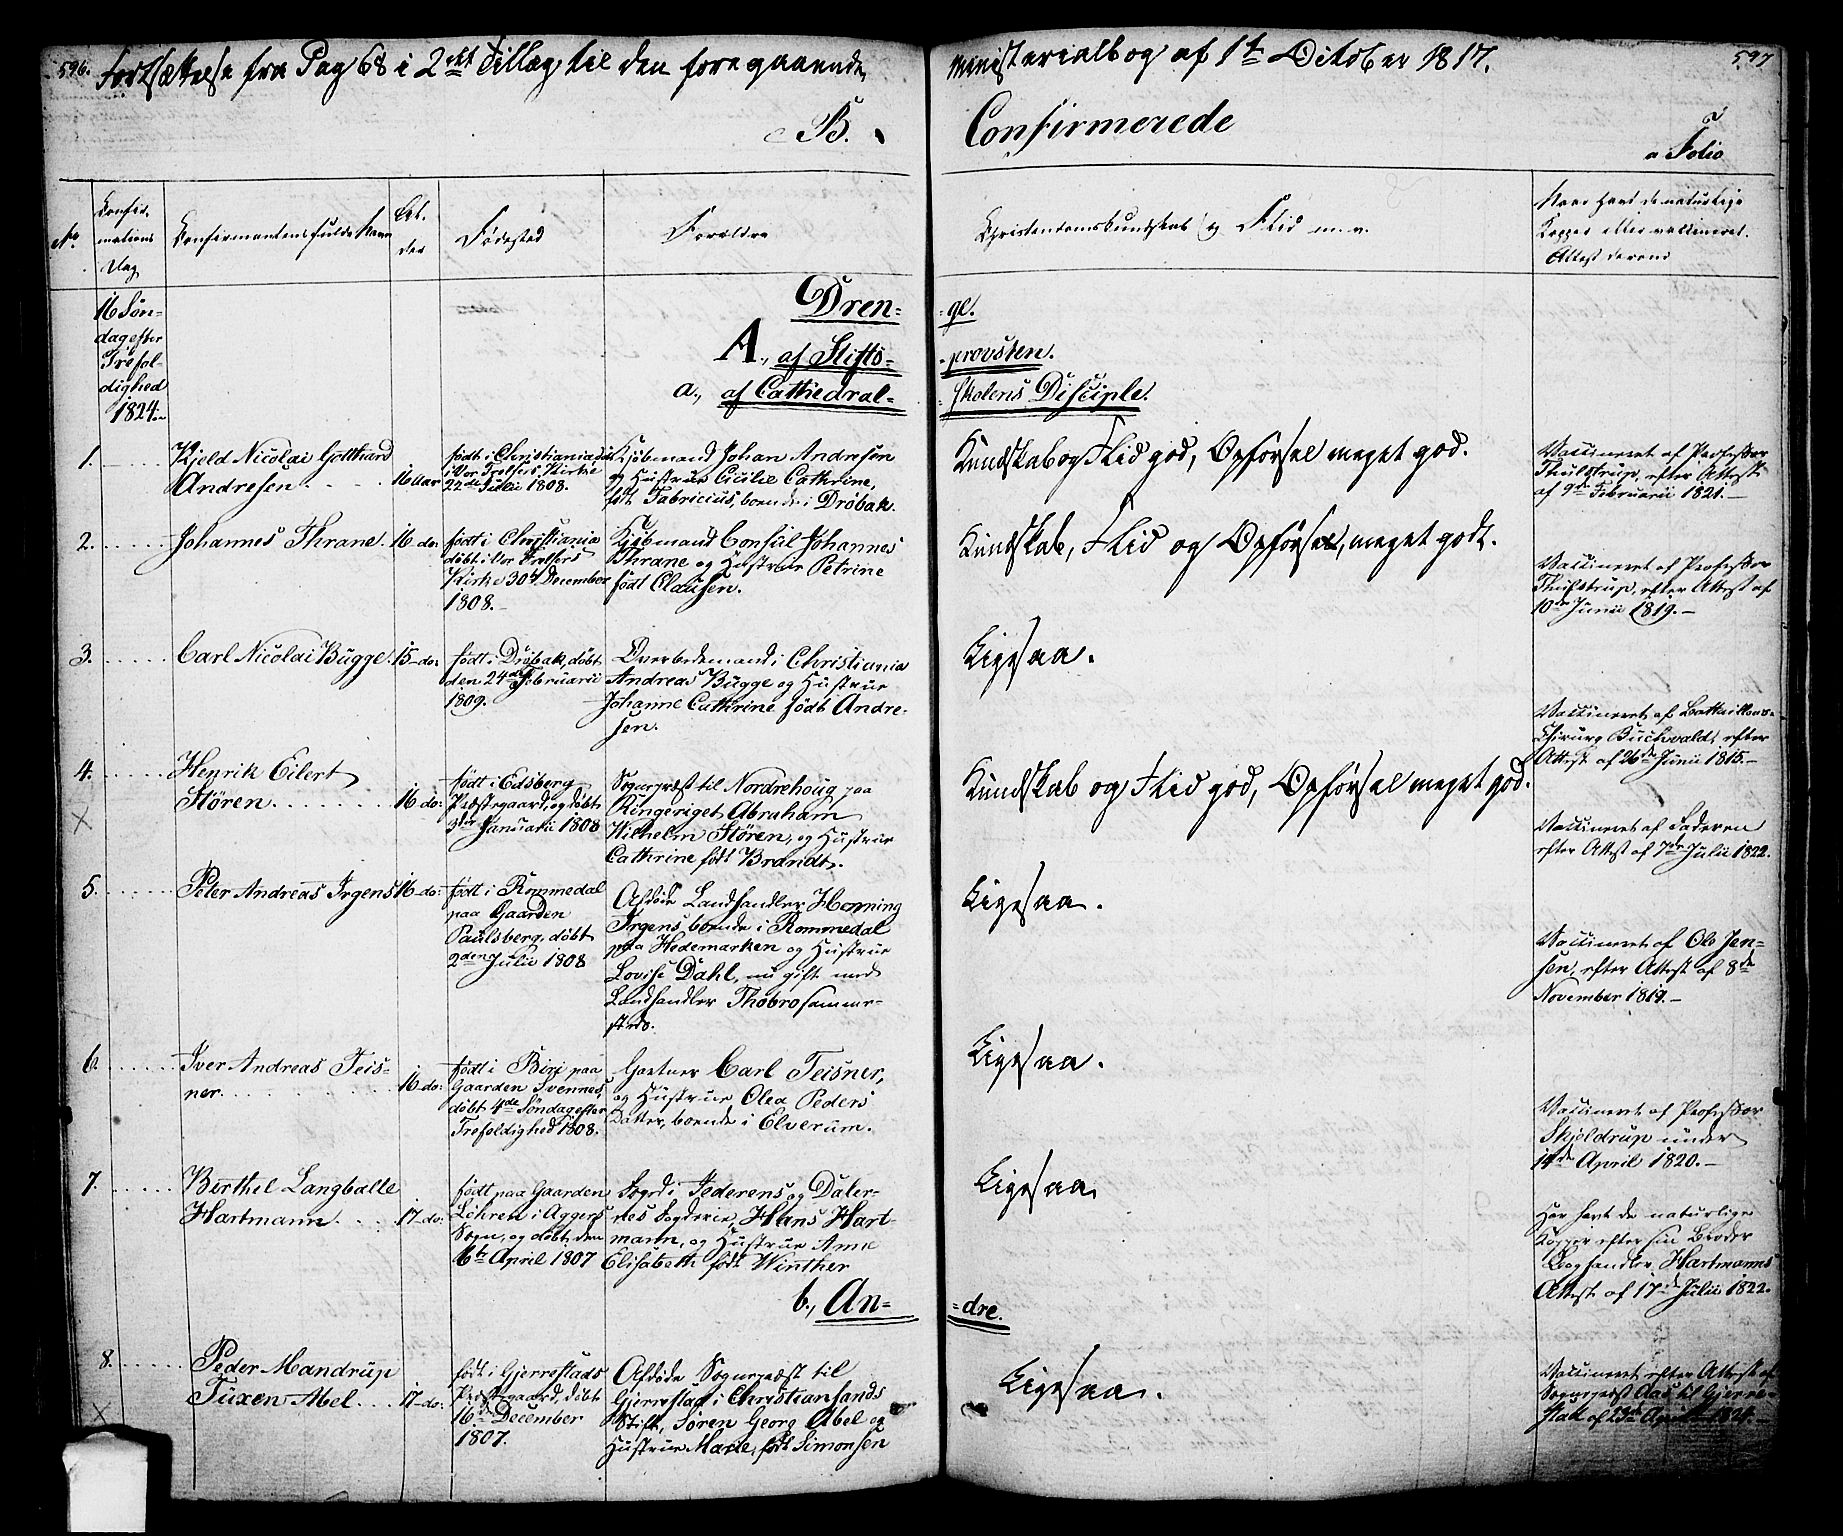 596. Fortsættelse fra Pag 68 i 2det Tillæg til den foregaaende Ministerialbog af 1te October 1817. 597
B. Confirmerede
a Folio
No.
Confir-
mations
Dag
Confirmantens fulde Navn
Al-
der
Fødested
Forældre
Christendomskundskab og Flid m. v.
Hvor havt de naturlige
Kopper eller vaccineret.
Attest derom
16 Søn-
dag efter
Trefol-
dighed
1824.
Dren- ge.
A., af Stifts- provsten.
a., af Cathedral- skolens Disciple.
1.
Kjeld Nicolai Gotthard
Andresen
16 Aar
født i Christiania døbt
i Vor Frelsers Kirke
22de Julii 1808.
Kjøbmand Johan Andresen
og Hustrue Cicilie Cathrine,
født Fabricius, boende i Drøbak.
Kundskab og Flid god, Opførsel meget god.
Vaccineret af Professor
Thulstrup, efter Attest
af 9de Februarii 1821.
2.
Johannes Thrane
16 do:
født i Christiania
døbt i Vor Frelsers
Kirke 30te December
1808.
Kjøbmand Consul Johannes
Thrane og Hustrue Petrine
født Clausen.
Kundskab, Flid og Opførsel, meget godt.
Vaccineret af Professor
Thulstrup, efter Attest af
10de Junii 1819.
3.
Carl Nicolai Bugge
15 do:
født i Drøbak, døbt
den 24de Februarii
1809.
Overbedemand i Christiania
Andreas Bugge og Hustrue
Johanne Cathrine født Andre-
sen.
Ligesaa.
Vaccineret af Battaillons-
Chirurg Buchvaldt, efter
Attest af 26de Junii 1815.
4.
Henrik Eilert
Stören
16 do:
født i Edsberg
Præstegaard, og døbt
3die Januarii 1808
Sognepræst til Nordrehoug paa
Ringeriget Abraham
Wilhelm Stören, og Hustrue
Cathrine født Brandt.
Kundskab og Flid god, Opførsel meget god.
Vaccineret af Faderen
efter Attest af 7de Julii 1822.
5.
Peter Andreas Irgens
16 do:
født i Rommedal
paa Gaarden
Paulsberg, døbt
2den Julii 1808
Afdøde Landhandler Henning
Irgens, boende i Rommedal
paa Hedemarken og Hustrue
Lovise Dahl, nu gift med
Landhandler Thobro samme-
steds.
Ligesaa.
Vaccineret af Ole Jen-
sen, efter Attest af 8de
November 1819.
6.
Iver Andreas Teis-
ner
16 do:
født i Biri paa
Gaarden Svennes,
døbt 4de Søndag efter
Trefoldighed 1808.
Gartner Carl Teisner,
og Hustrue Olea Peders
Datter, boende i Elverum.
Ligesaa.
Vaccineret af Professor
Skjeldrup under
14de April 1820.
7.
Berthel Langballe
Hartmann
17 do:
født paa Gaarden
Löhren i Aggers
Sogn, og døbt den
6te April 1807
Fogd i Jederens og Daler-
nes Fogderie, Hans Hart-
mann, og Hustrue Anne
Elisabeth født Winther
Ligesaa
Har havt de naturlige
Kopper efter sin Broder
Boghandler Hartmanns
Attest af 17de Julii 1822.
b., An- dre.
8.
Peder Mandrup
Tuxen Abel
17 do:
født i Gjerrestads
Præstegaard, døbt
16de December
1807.
Afdøde Sognepræst til
Gjerrestad i Christiansands
Stift, Søren Georg Abel og
Hustrue Marie, født Simonsen
Ligesaa.
Vaccineret efter Attest af
Sognepræst Aas til Gjerre-
stad af 13de April 1824.